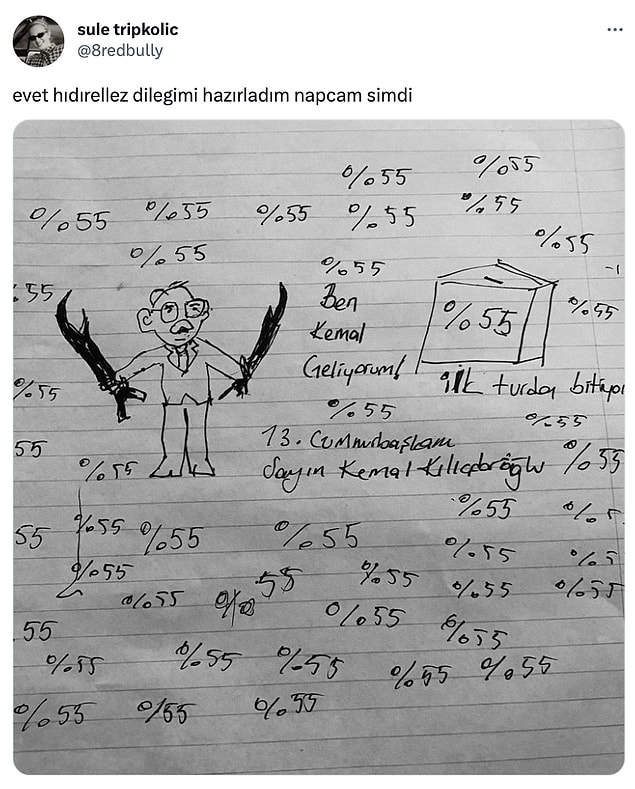 sule tripkolic
@8redbully
evet hıdırellez dilegimi hazırladım napcam simdi
%55
%55
%55 %55 %55 %55 %55
%55
%55
%55
%55
Ben
Kemal
Geliyorum!
%55
%55
ilk turda bitiyor
%55
%55
%55
55
13. Cumhurbaşkanı
Sayın Kemal Kılıçdaroğlu
%55
%55
%55
%55
55
%55
%55
%55
%55
%55
%55
%55
%55
%55
%55
55
%55
%55
%55
%55
%55
%55
%55
%55
%55
%55